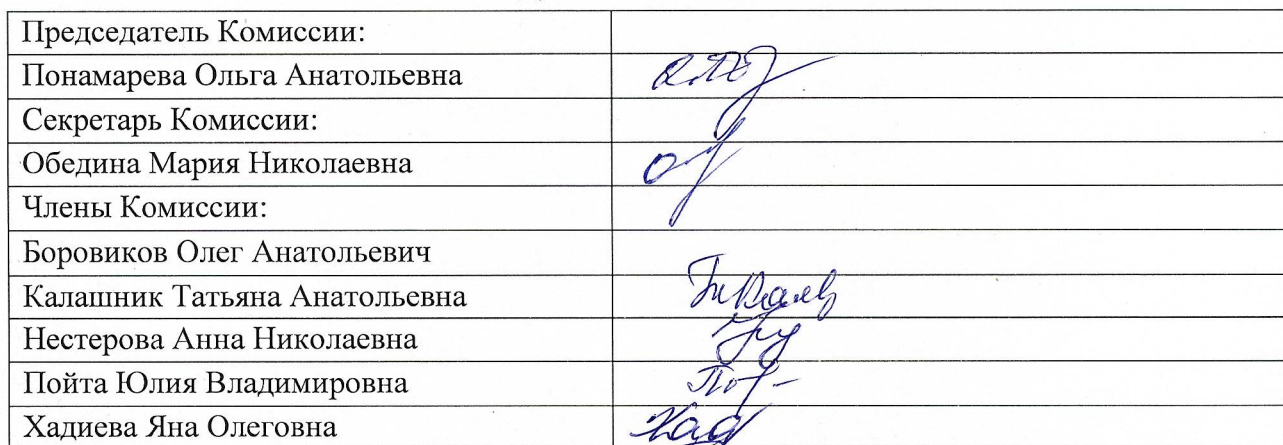 Председатель Комиссии:
Понамарева Ольга Анатольевна
Секретарь Комиссии:
Обедина Мария Николаевна
Члены Комиссии:
Боровиков Олег Анатольевич
Калашник Татьяна Анатольевна
Нестерова Анна Николаевна
Пойта Юлия Владимировна
Хадиева Яна Олеговна